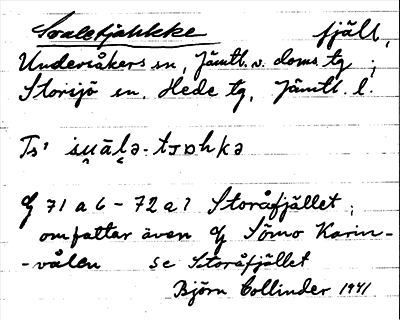 Soaletjahkke fjäll,
Undersåkers sn, Jämtl. v. doms. tg ;
Storsjö sn, Hede tg, Jämtl. l.
71 a 6 - 72 a 7 Storåfjället ;
omfattar även Sömo Karin-
-vålen se Storåfjället
Björn Collinder 1941